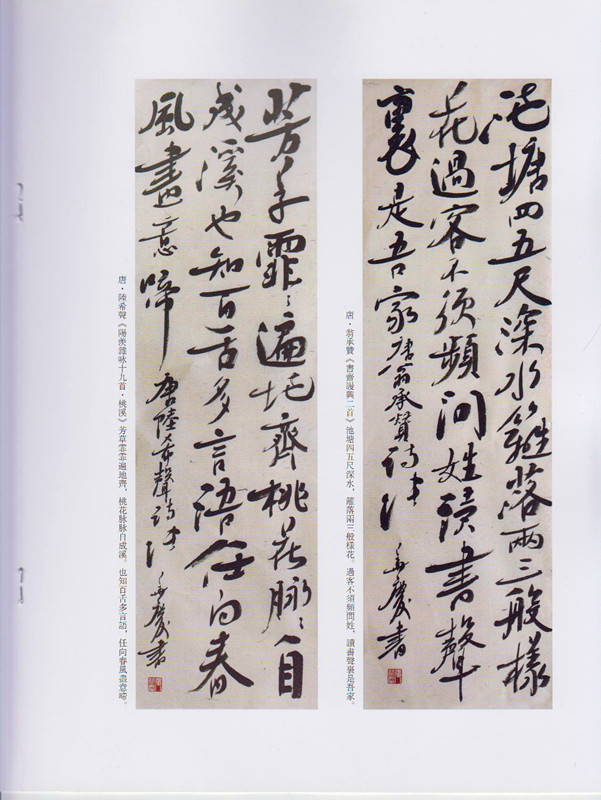 池塘四五尺深水籬落兩三般樣
花過客不須頻問姓讀書聲
裏是吾家 唐翁承贊詩 慶書
唐·翁承贊《書齋謾興二首》池塘四五尺深水，籬落兩三般樣花。過客不須頻問姓，讀書聲裏是吾家。
芳草霏〻遍地齊桃花脈〻自
成溪也知百舌多言語任向春
風盡意啼 唐陸希聲詩 慶書
唐·陸希聲《陽羨雜咏十九首·桃溪》芳草霏霏遍地齊，桃花脉脉自成溪。也知百舌多言語，任向春風盡意啼。